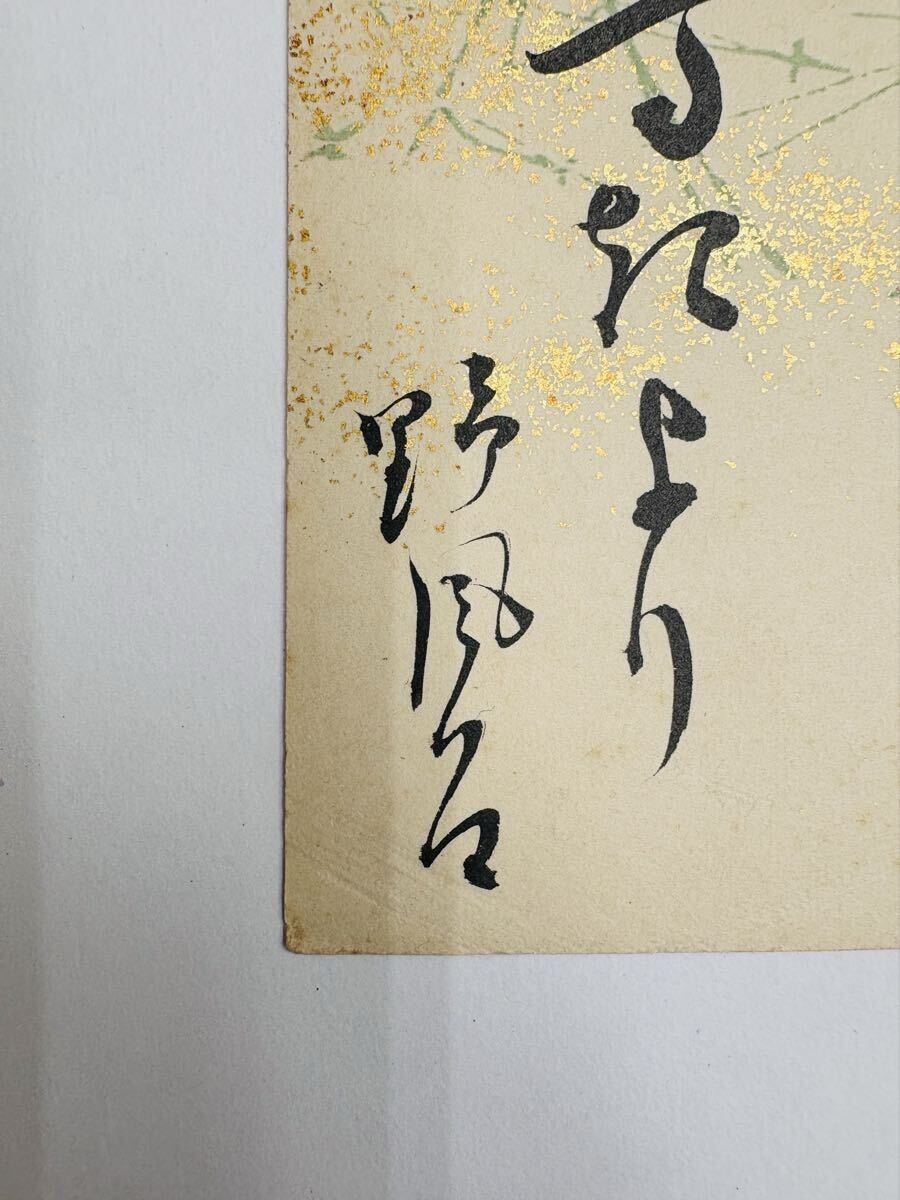 すきより
野風呂